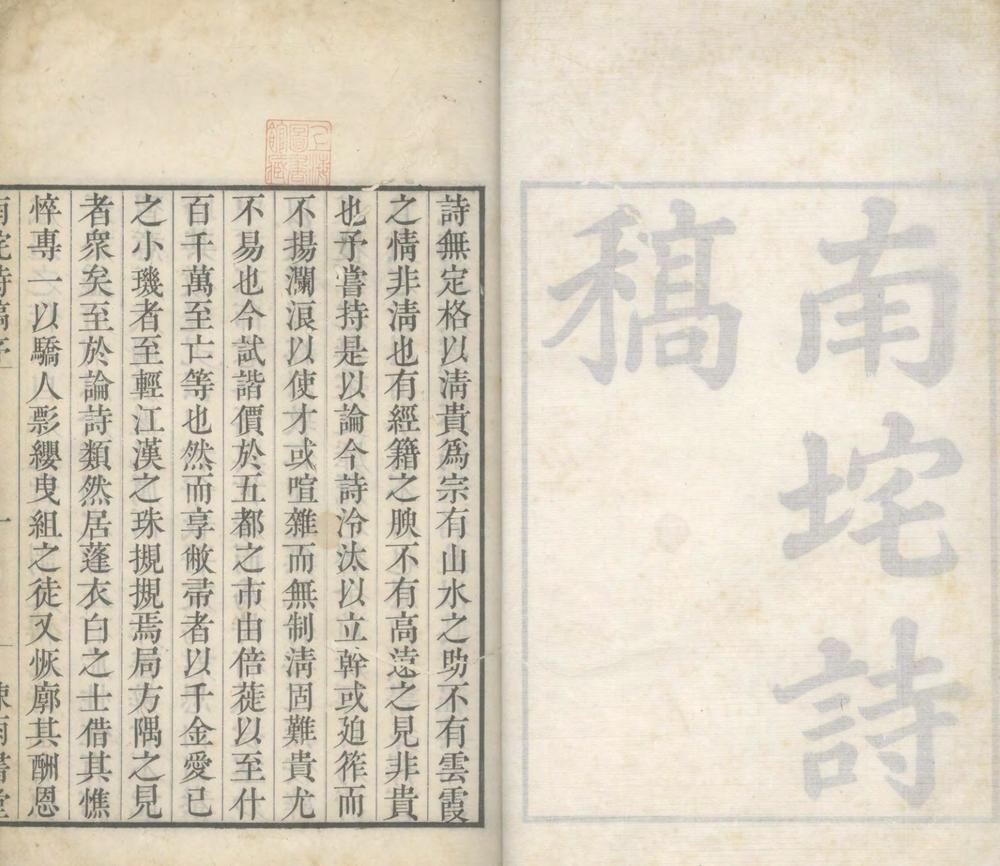 南垞詩
稿
上海
圖書
館藏
詩無定格以淸貴爲宗有山水之助不有雲霞
之情非淸也有經籍之腴不有高遠之見非貴
也予嘗持是以論今詩泠汰以立幹或廹筰而
不揚瀾浪以使才或喧雜而無制淸固難貴尤
不易也今試諧價於五都之市由倍蓰以至什
百千萬至亡等也然而享敝帚者以千金愛已
之小璣者至輕江漢之珠摫摫焉局方隅之見
者衆矣至於論詩類然居蓬衣白之士借其憔
悴專一以驕人影纓曳組之徒又恢廓其酬恩
南垞詩稿序 一